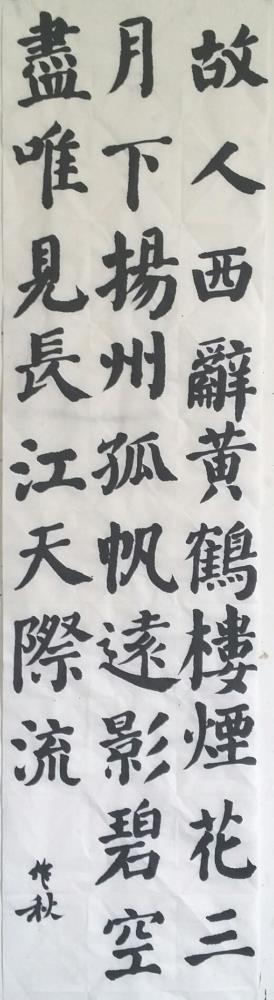 故人西辭黃鶴樓煙花三
月下揚州孤帆遠影碧空
盡唯見長江天際流
作秋